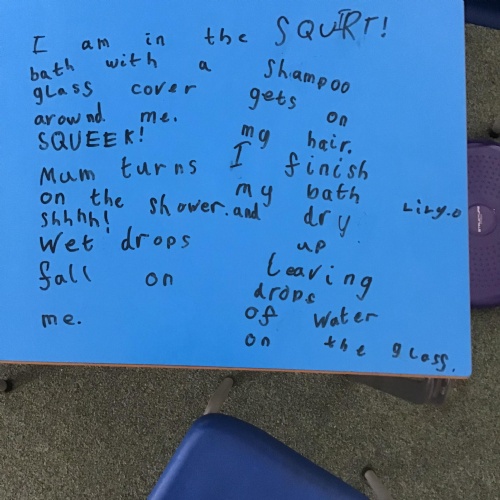 I am in the
bath with a
glass cover
around me.
SQUEEK!
Mum turns
on the shower.
Shhhh!
Wet drops
fall on
me.
SQUIRT!
Shampoo
gets on
my hair.
I finish
my bath
and dry
up
leaving
drops
of water
on the glass.
Lily.O